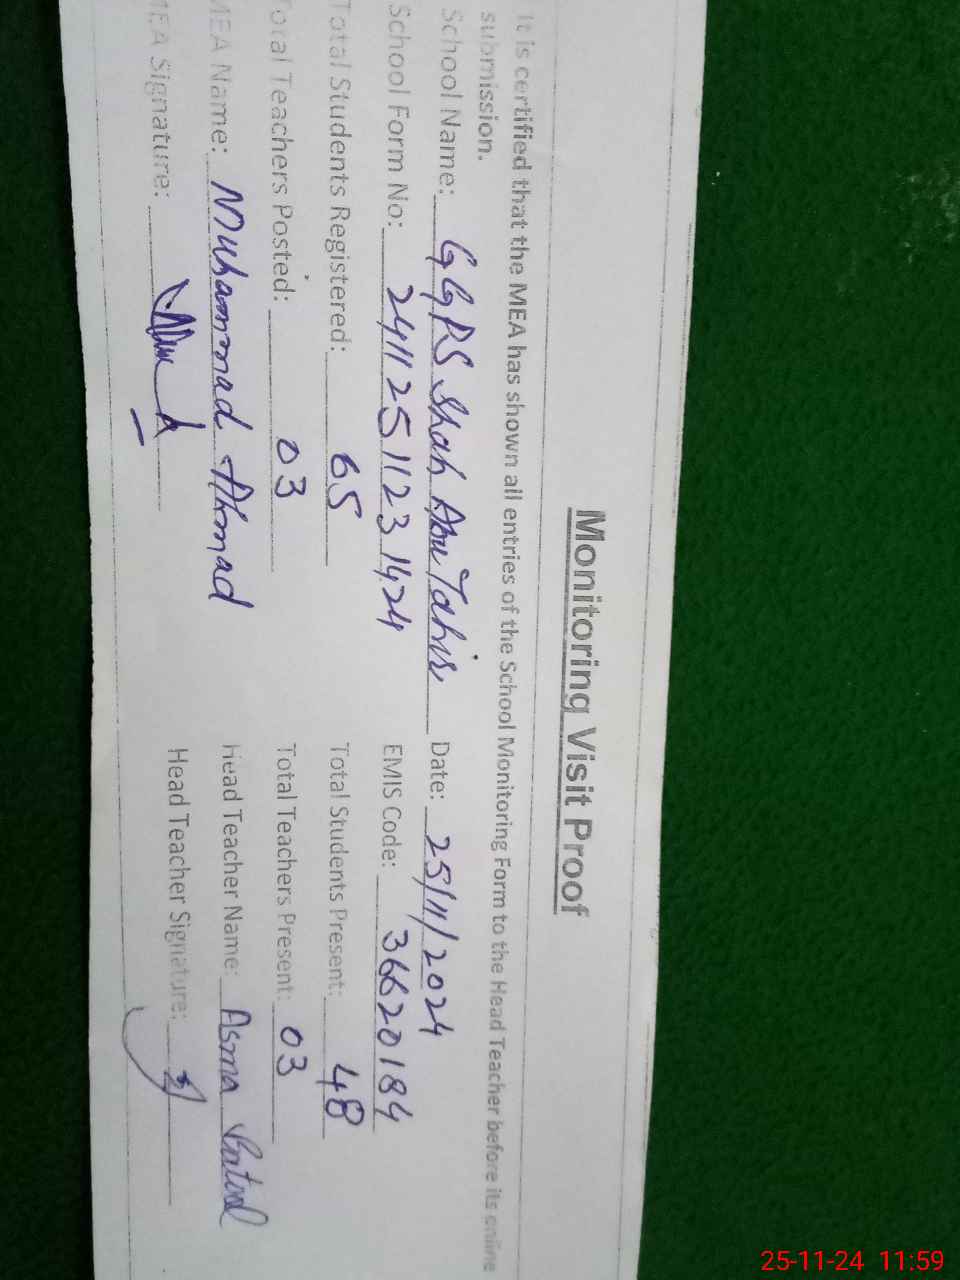 Monitoring Visit Proof
It is certified that the MEA has shown all entries of the School Monitoring Form to the Head Teacher before its online
submission.
School Name: GGPS Shah Abu Tahir Date: 25/11/2024
School Form No: 24112511231424 EMIS Code: 36620184
Total Students Registered: 65 Total Students Present: 48
Total Teachers Posted: 03 Total Teachers Present: 03
MEA Name: Muhammad Ahmad Head Teacher Name: Asma Batool
MEA Signature: Head Teacher Signature:
25-11-24 11:59